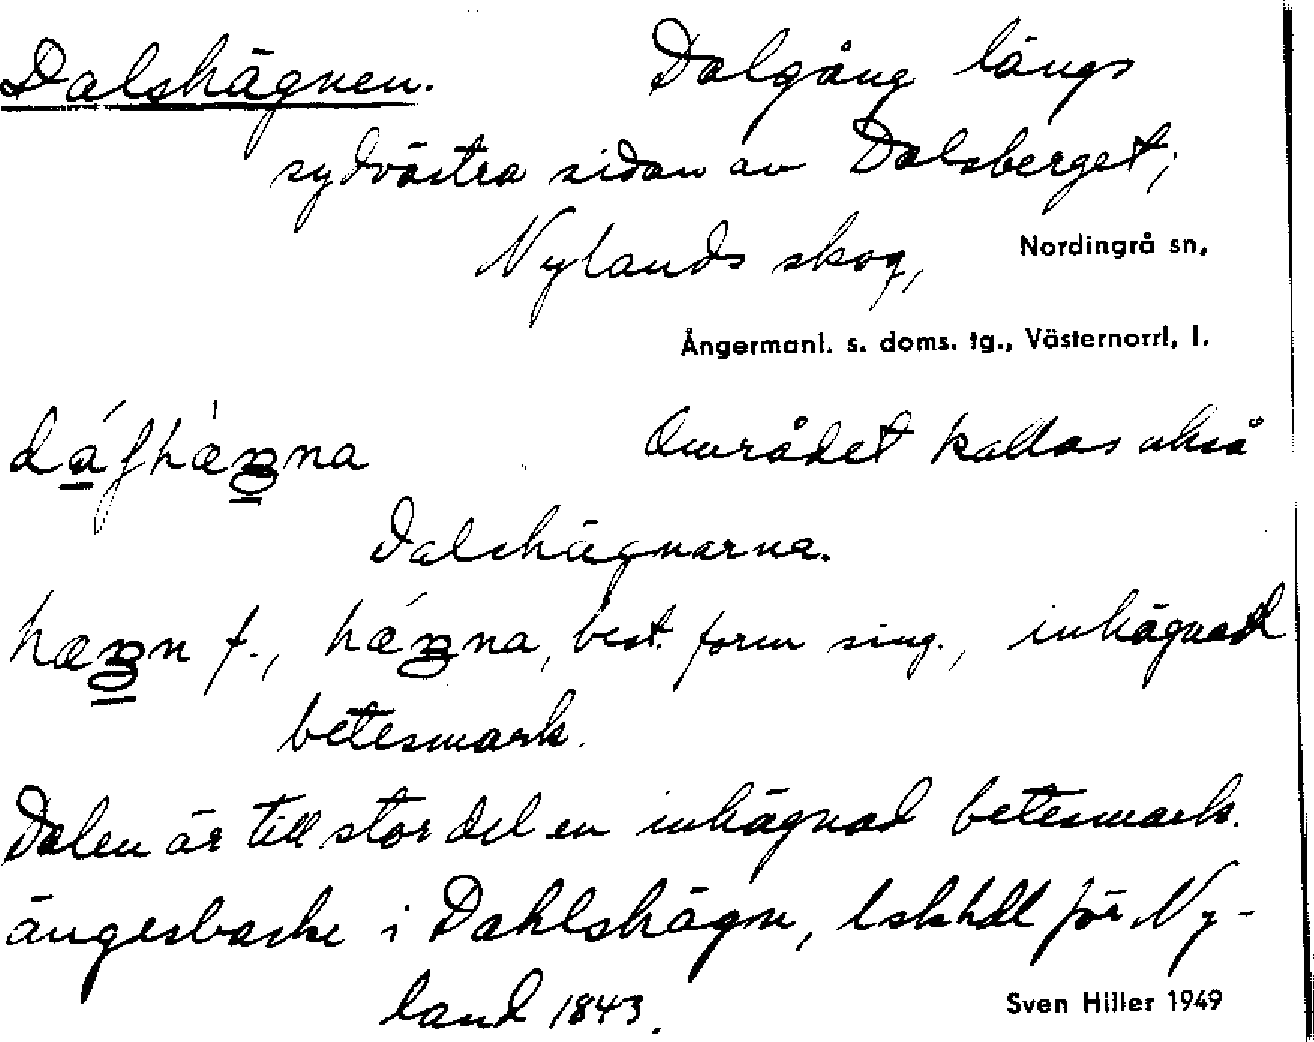 Dalshägnen. Dalgång längs
sydvästra sidan av Dalsberget;
Nylands skog, Nordingrå sn,
Ångermanl. s. doms. tg., Västernorrl. l.
Området kallas också
Dalshägnarna.
f., best. form sing., inhägnad
betesmark.
Dalen är till stor del en inhägnad betesmark.
ängesbacke i Dahlshägn, lskhdl för Ny-
land 1843.
Sven Hiller 1949